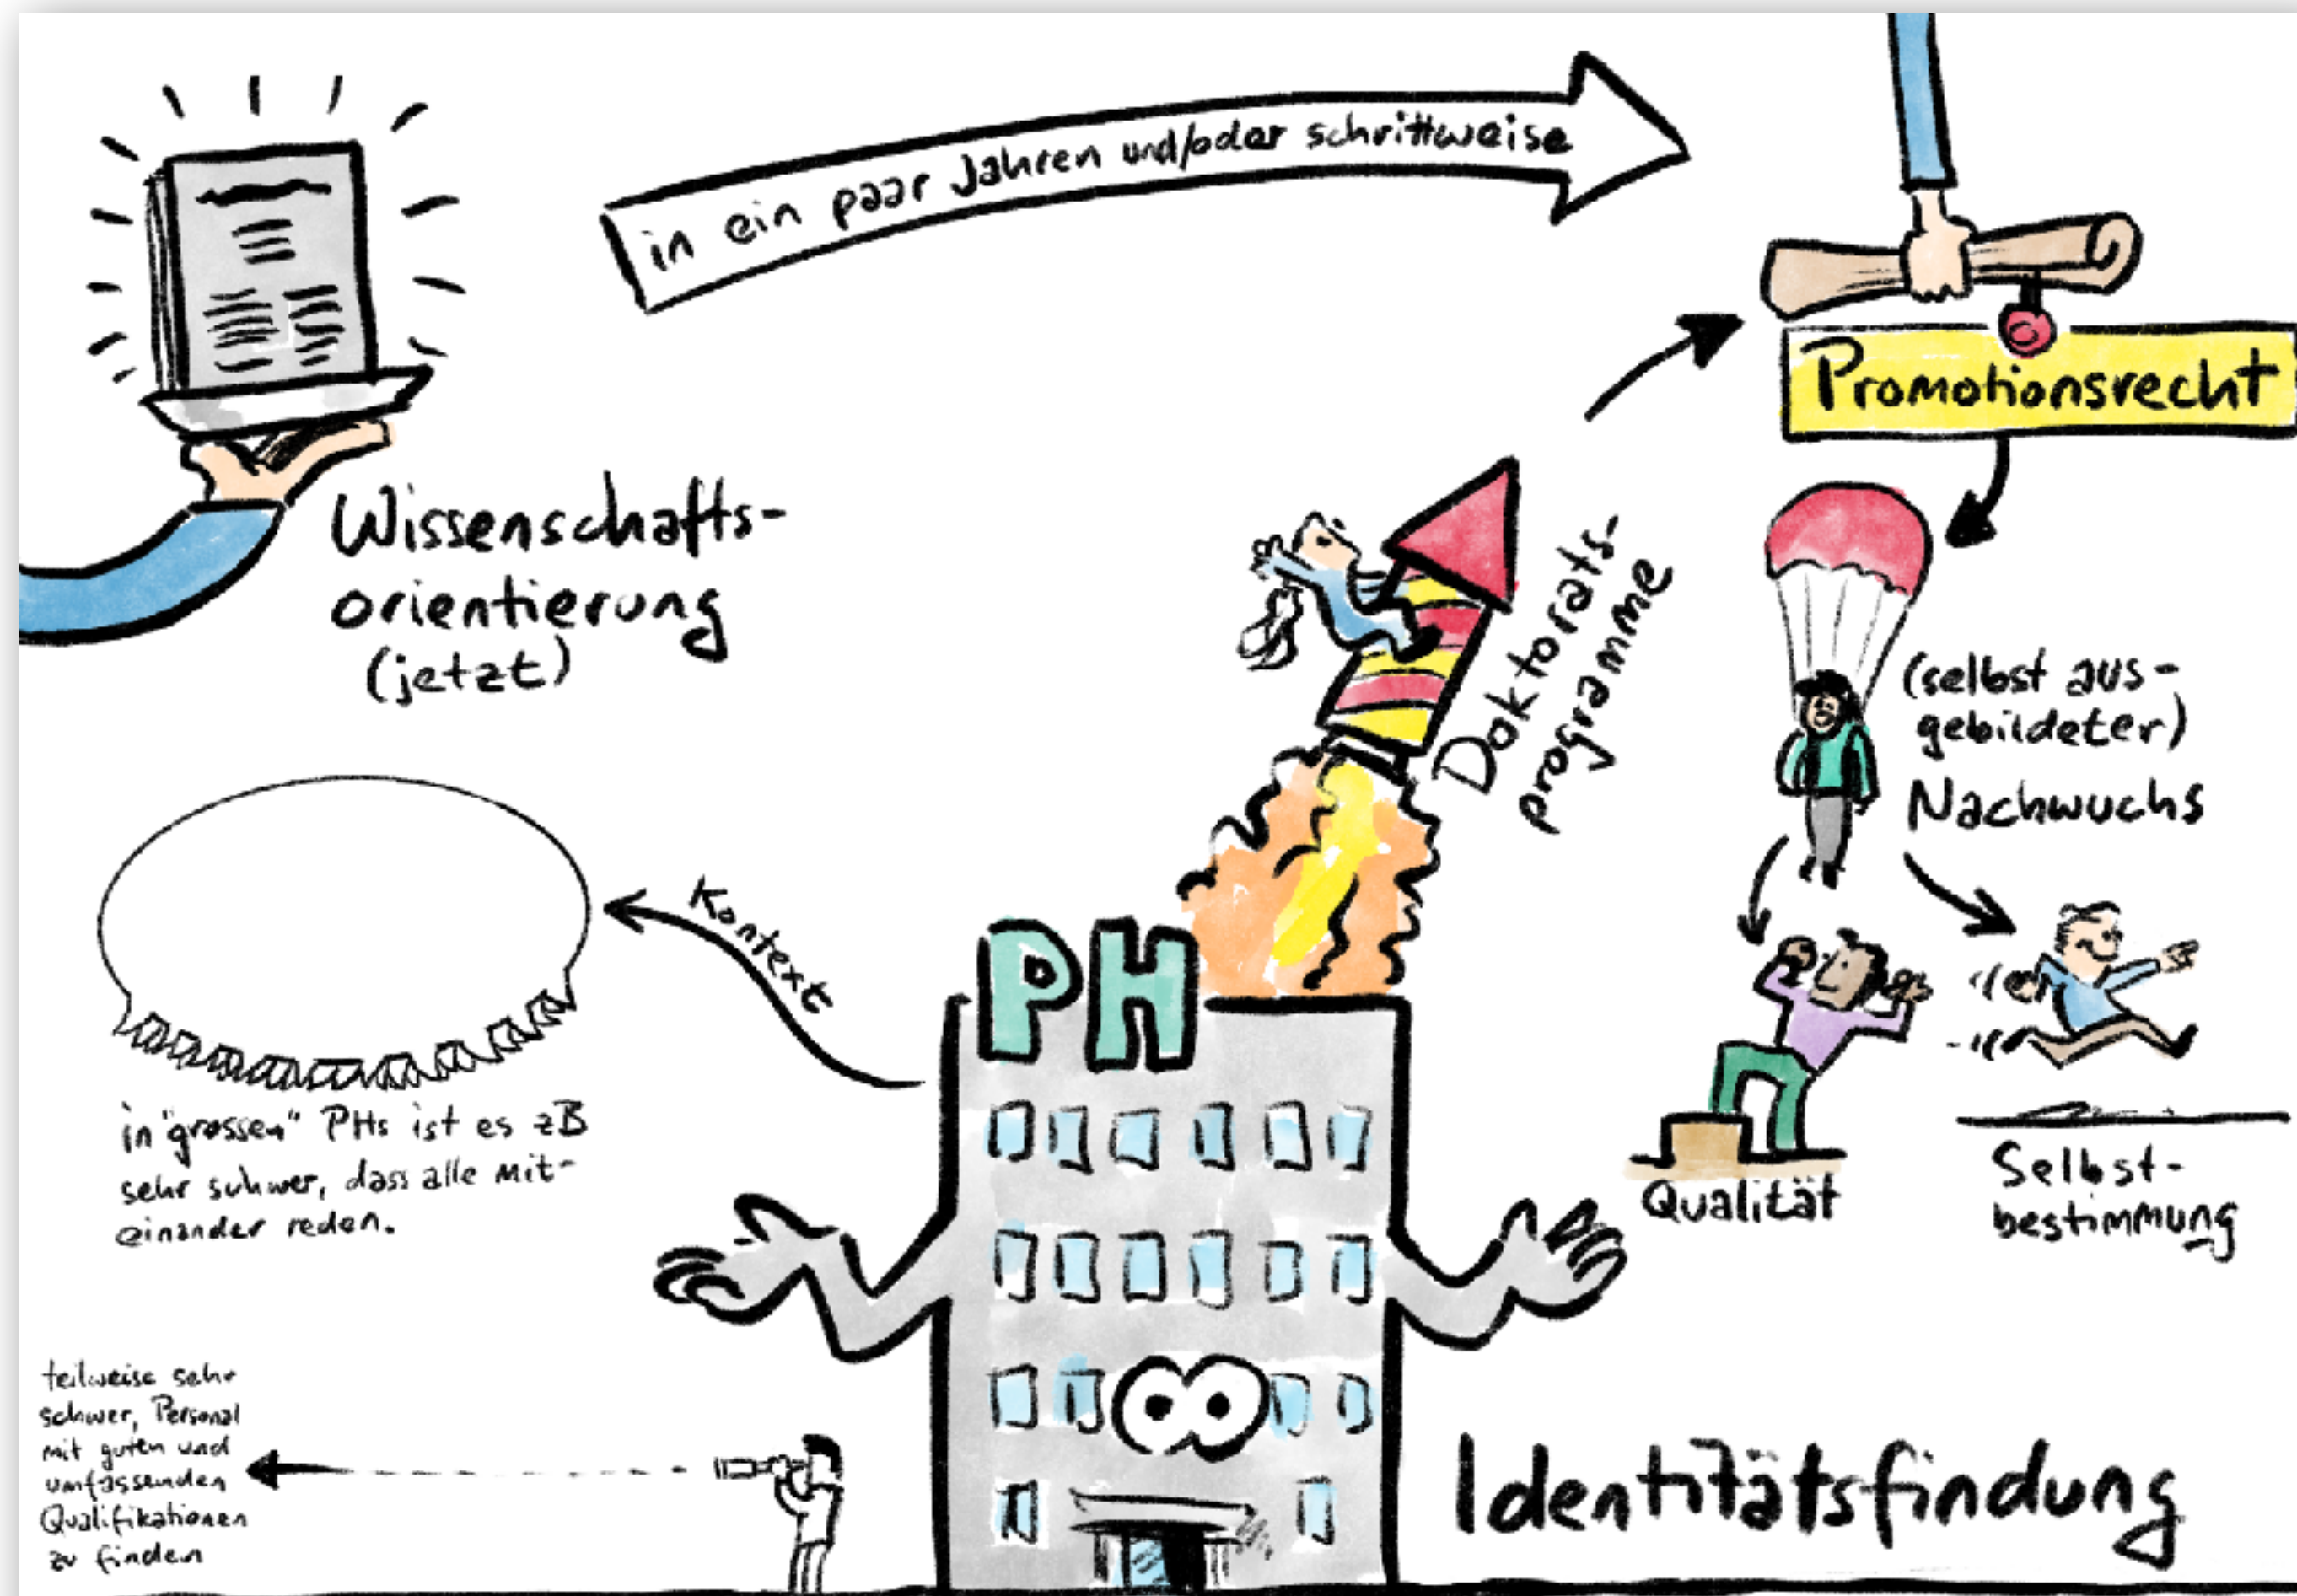 in ein paar Jahren und/oder schrittweise
Promotionsrecht
Wissenschafts-
orientierung
(jetzt)
Doktorats-
programme
(selbst aus-
gebildeter)
Nachwuchs
Kontext
PH
in "grossen" PHs ist es zB
sehr schwer, dass alle mit-
einander reden.
Qualität
Selbst-
bestimmung
teilweise sehr
schwer, Personal
mit guten und
umfassenden
Qualifikationen
zu finden
Identitätsfindung